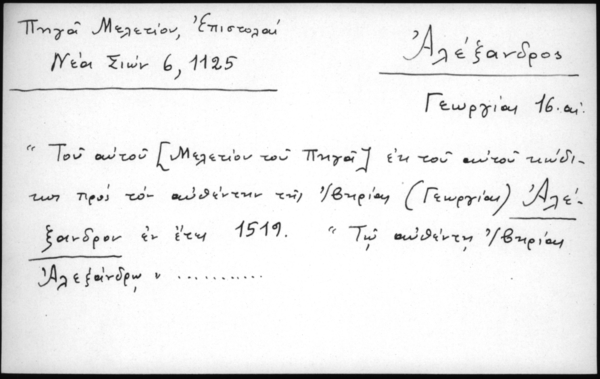 Πηγᾶ Μελετίου, Ἐπιστολαί
Νέα Σιών 6, 1125
Ἀλέξανδρος
Γεωργίας 16. αἰ.
"Τοῦ αὐτοῦ [Μελετίου τοῦ Πηγᾶ] ἐκ τοῦ αὐτοῦ κώδι-
κος πρός τόν αὐθέντην τῆς Ἰβηρίας (Γεωργίας) Ἀλέ-
ξανδρον ἐν ἔτει 1519. "Τῷ αὐθέντῃ Ἰβηρίας
Ἀλεξάνδρῳ " ...........